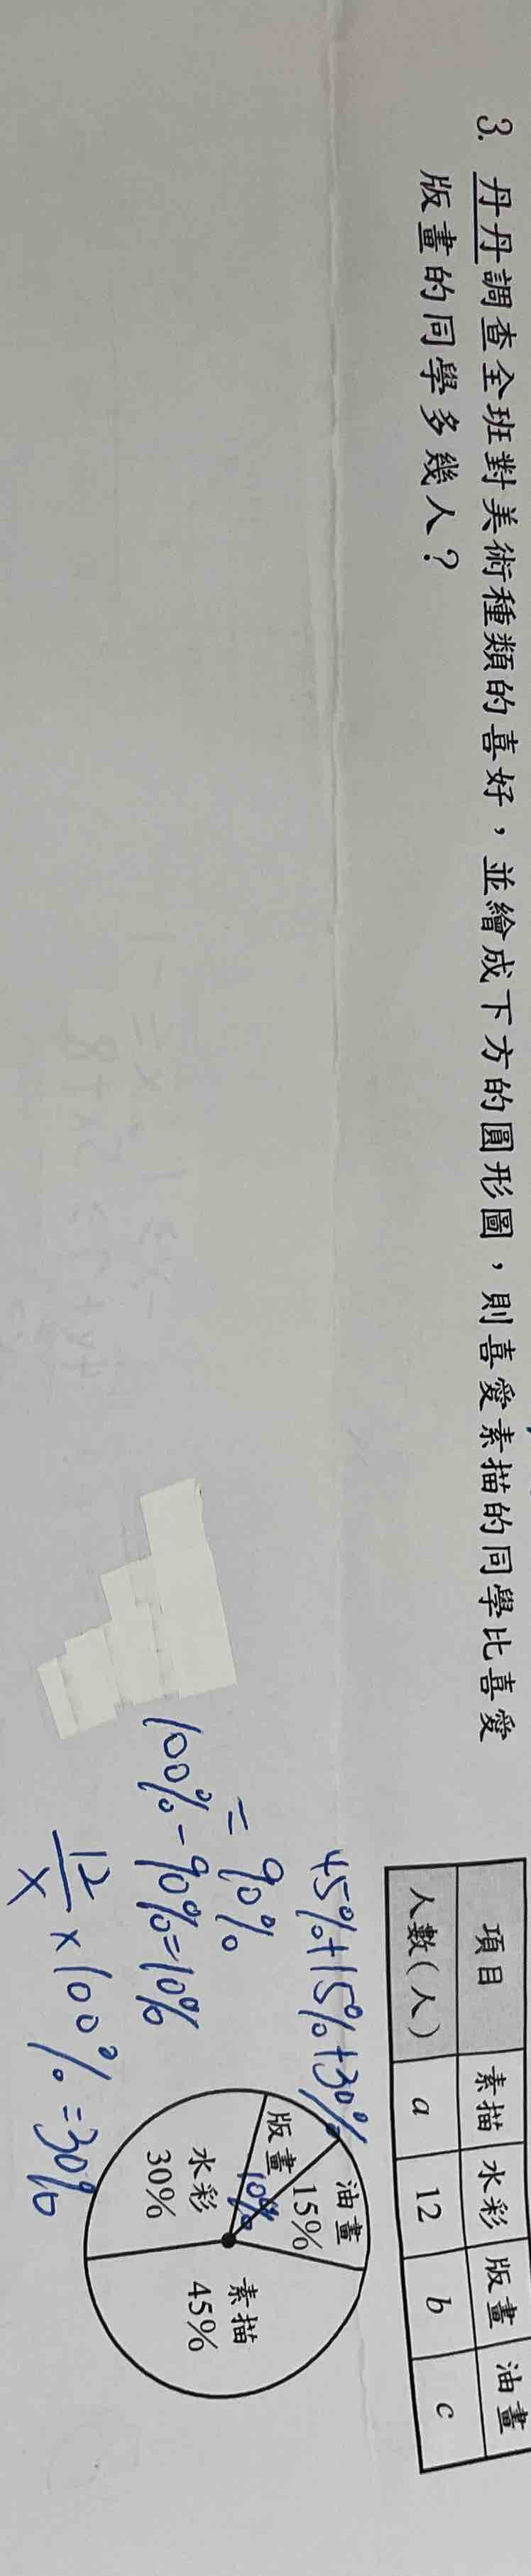 3. 丹丹調查全班對美術種類的喜好，並繪成下方的圓形圖，則喜愛素描的同學比喜愛
版畫的同學多幾人？
項目 素描 水彩 版畫 油畫
人數(人) a 12 b c
45%+15%+30%
=90%
100%-90%=10%
12/x ×100%=30%
油畫
15%
版畫
10%
水彩
30%
素描
45%